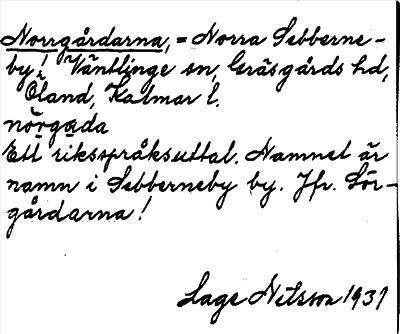 Norrgårdarna, = Norra Sebberne-
by! Ventlinge sn, Gräsgårds hd,
Öland, Kalmar l.
nörgɑda
Ett riksspråksuttal. Namnet är
namn i Sebberneby by. Jfr. Sör-
gårdarna!
Lage Nilsson 1937